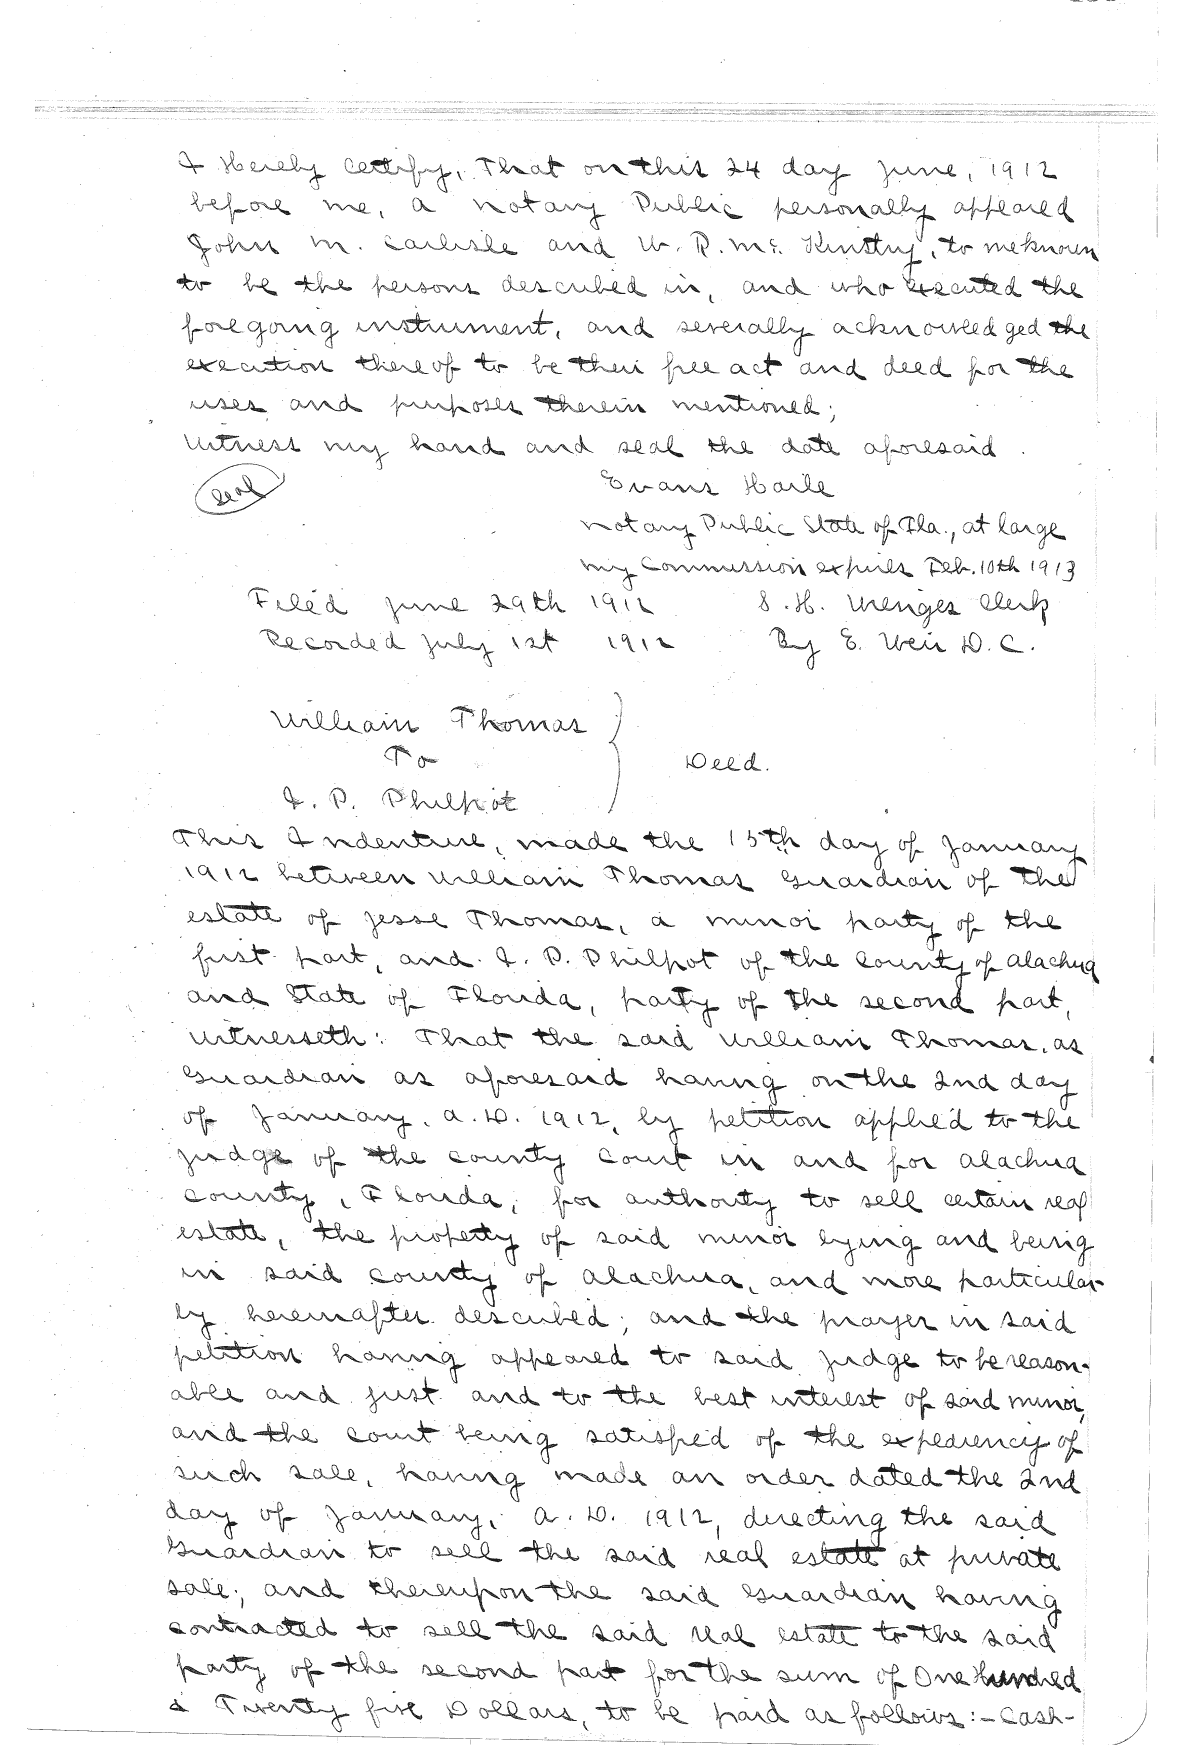 I Hereby Certify, That on this 24 day June, 1912
before me, a Notary Public personally appeared
John M. Carlisle and W. R. Mc. Kinstry, to me known
to be the persons described in, and who executed the
foregoing instrument, and severally acknowledged the
execution thereof to be their free act and deed for the
uses and purposes therein mentioned;
Witness my hand and seal the date aforesaid.
Seal
Evans Haile
Notary Public State of Fla., at large
My Commission expires Feb. 10th 1913
Filed June 29th 1912 S. H. Wienges Clerk
Recorded July 1st 1912 By E. Weir D. C.
William Thomas
To
Deed.
I. P. Philpot
This Indenture, made the 15th day of January
1912 between William Thomas Guardian of the
estate of Jesse Thomas, a minor party of the
first part, and I. P. Philpot of the County of Alachua
and State of Florida, party of the second part,
Witnesseth: That the said William Thomas, as
Guardian as aforesaid having on the 2nd day
of January, A. D. 1912, by petition applied to the
judge of the county Court in and for Alachua
County, Florida, for authority to sell certain real
estate, the property of said minor lying and being
in said county of Alachua, and more particular-
ly hereinafter described; and the prayer in said
petition having appeared to said judge to be reason-
able and just and to the best interest of said minor,
and the court being satisfied of the expediency of
such sale, having made an order dated the 2nd
day of January, A. D. 1912, directing the said
Guardian to sell the said real estate at private
sale; and thereupon the said Guardian having
contracted to sell the said real estate to the said
party of the second part for the sum of One Hundred
& Twenty five Dollars, to be paid as follows:- Cash-